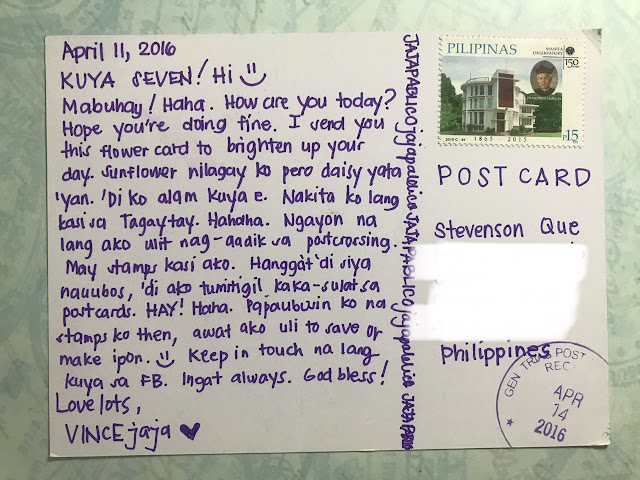 April 11, 2016
KUYA SEVEN! Hi
Mabuhay! Haha. How are you today?
Hope you're doing fine. I send you
this flower card to brighten up your
day. Sunflower nilagay ko pero daisy yata
'yan. 'Di ko alam kuya e. Nakita ko lang
kasi sa Tagaytay. Hahaha. Ngayon na
lang ako ulit nag-aadik sa postcrorsing.
May stamps kasi ako. Hanggat 'di siya
nauubos, 'di ako tumitigil kaka-sulat sa
postcards. HAY! Haha. Papaubusin ko na
stamps ko then, awat ako uli to save or
make ipon. Keep in touch na lang
kuya sa FB. Ingat always. God bless!
Love lots,
VINCE jaja
PILIPINAS
MANILA
OBSERVATORY
150
1865 - 2015
P15
POST CARD
Stevenson Que
Philippines
GEN TRIAS POST
REC
APR
14
2016